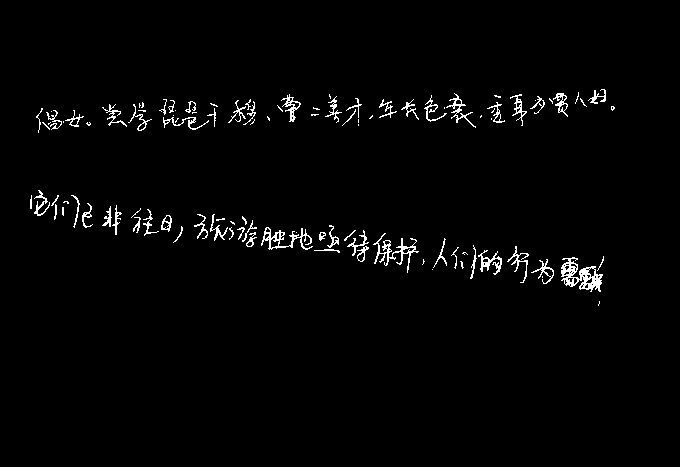 倡女。尝学琵琶于穆、曹二善才,年长色衰,委身为贾人妇。
它们已非往日,旅游胜地亟待保护,人们的行为需